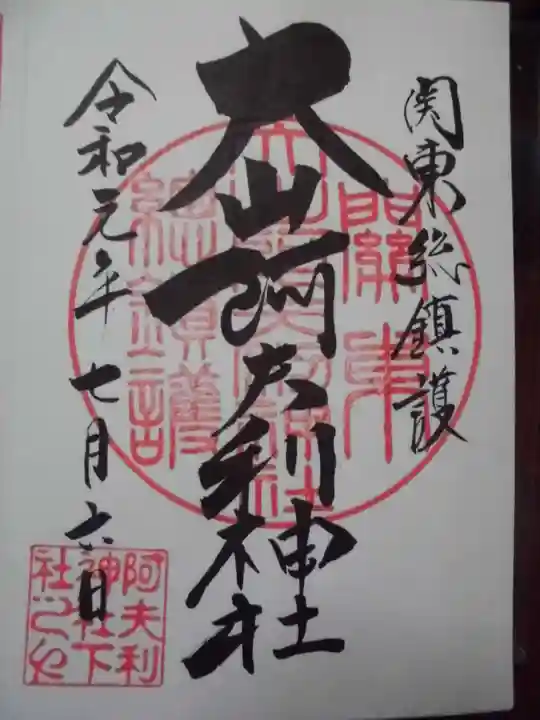 関東総鎮護
大山阿夫利神社
令和元年七月六日
關東
総鎮護
阿夫利
神社下
社之印